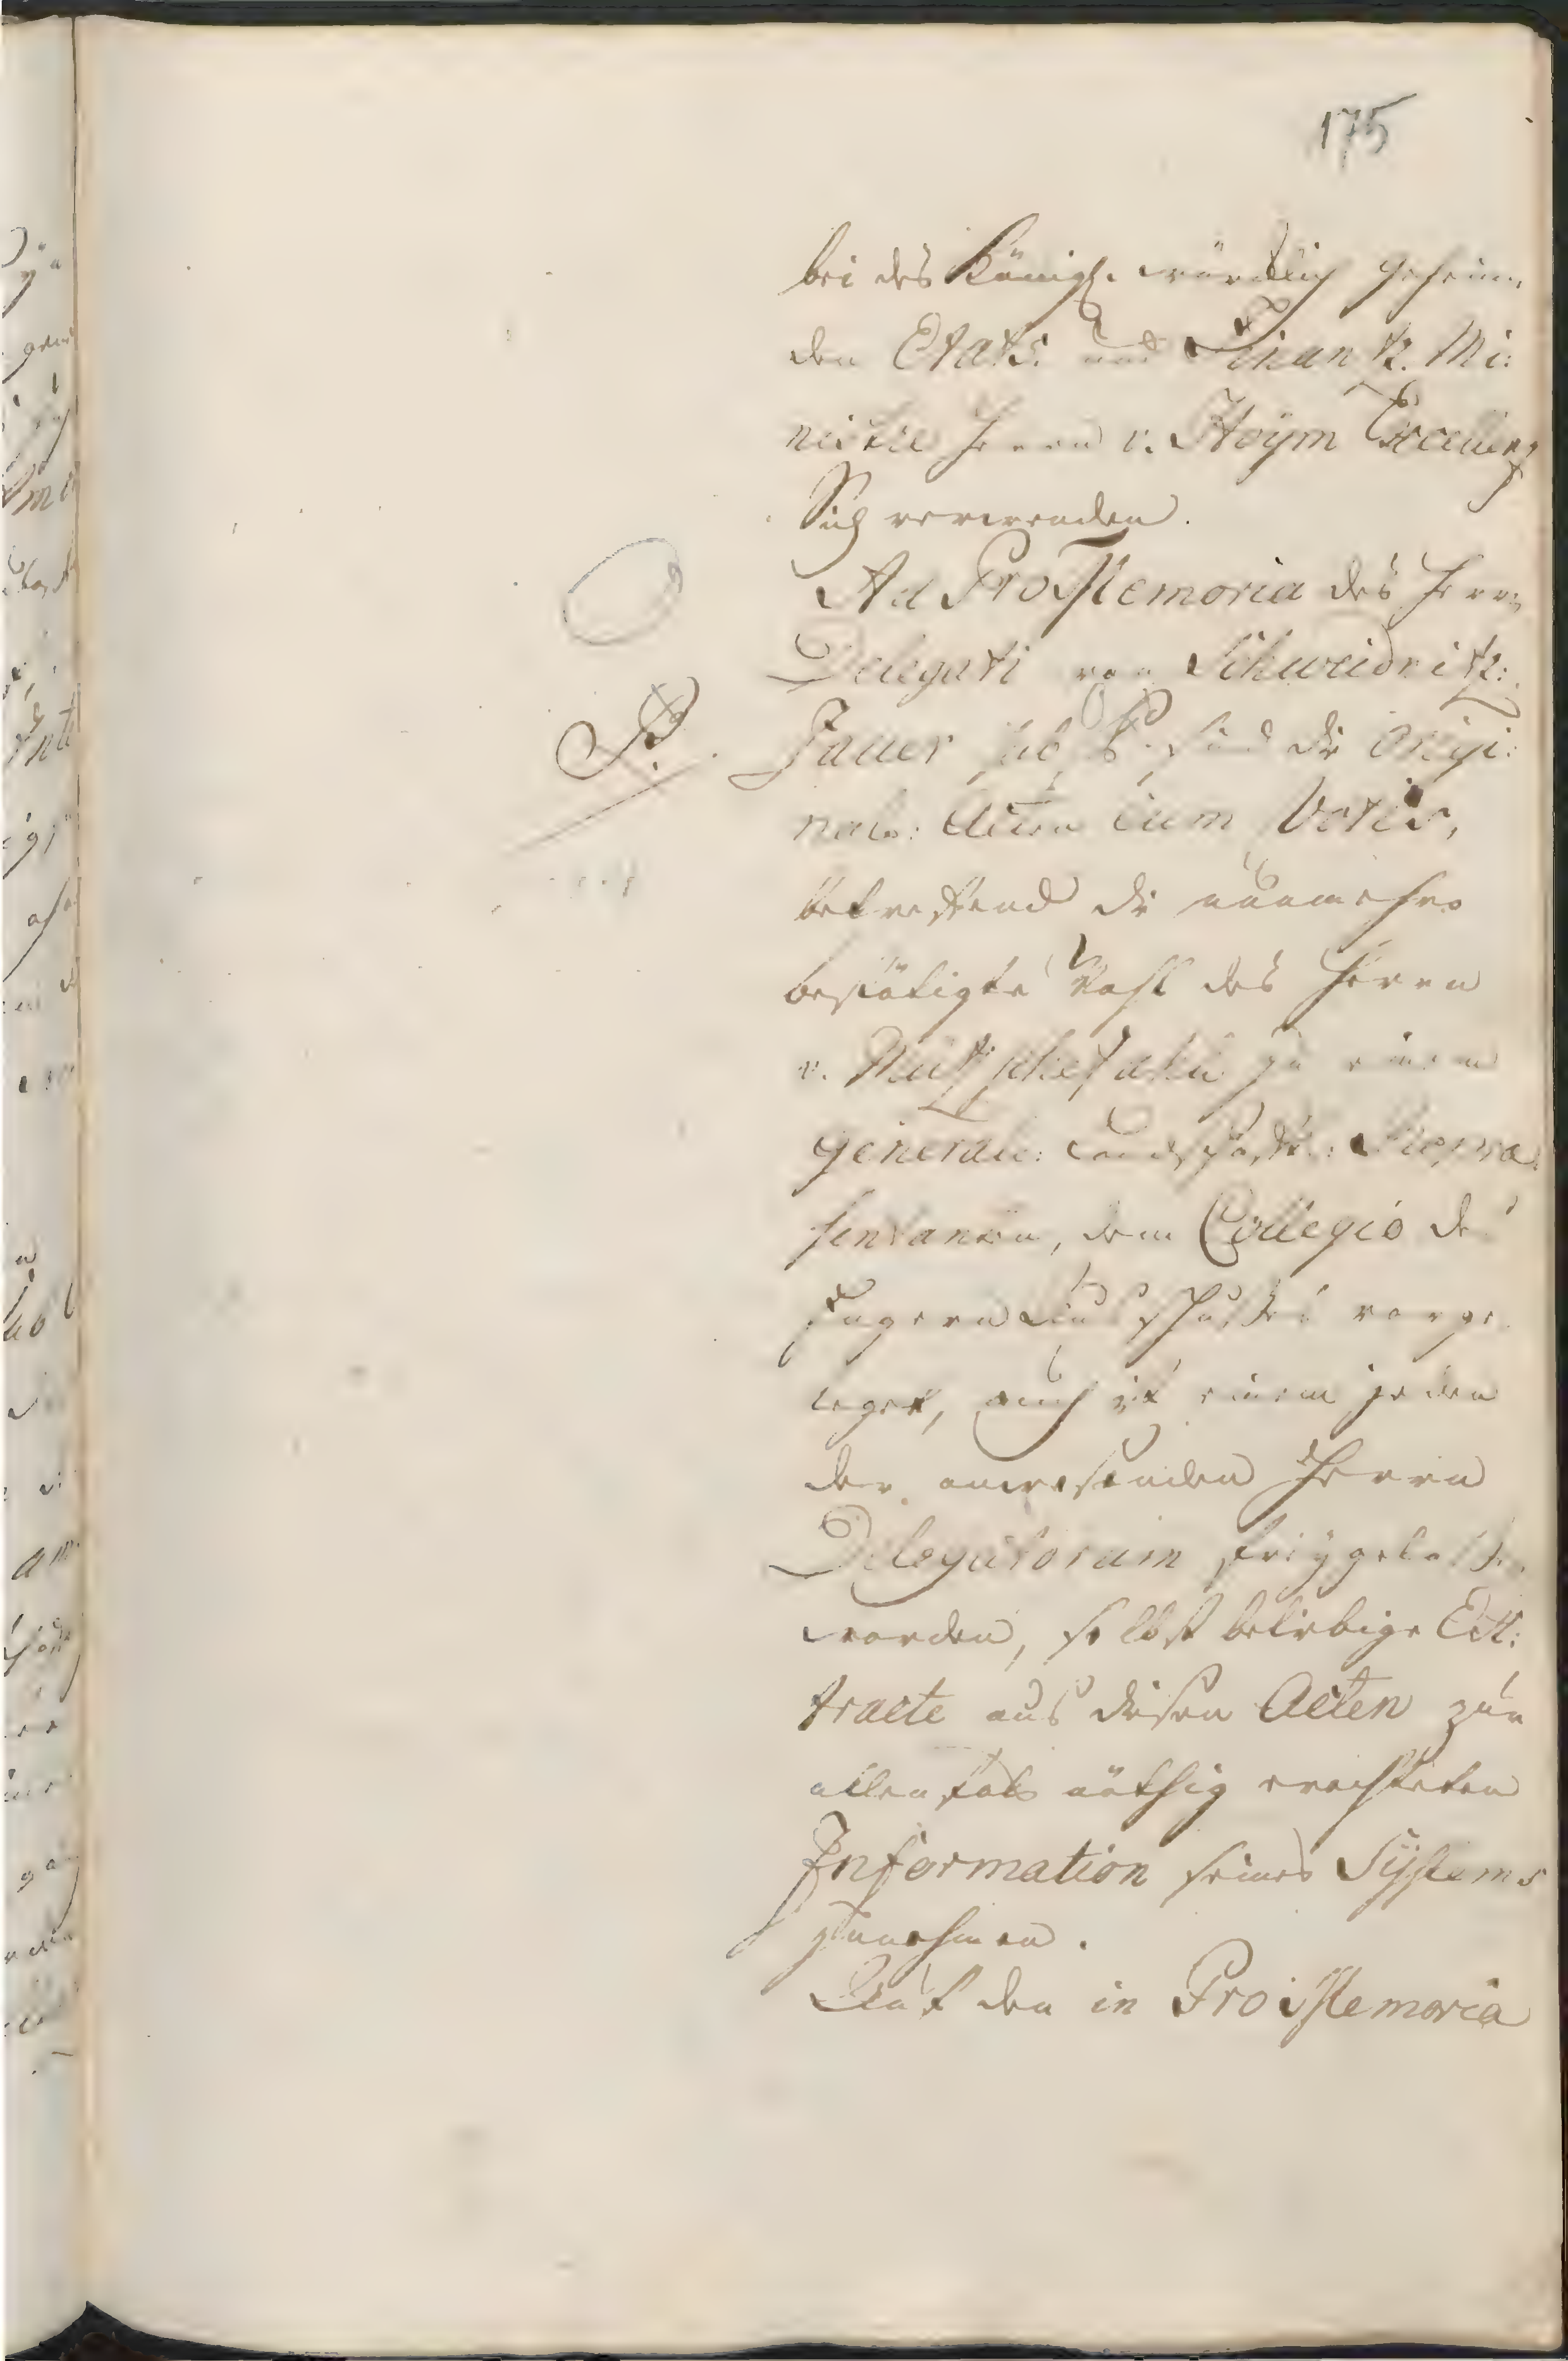 175
bei des Königl. würcklich geheim
den Etats: und Finantz. Mi:
nistre Herrn v. Hoÿm Excellenz
Sich verwenden.
Ad ProMemoria des Herrn
Delegati von Schweidnitz:
Jauer sub B. sind die Origi:
nal: Acten cum Votis,
betreffend die nunmehro
bestätigte Wahl des Herrn
v. zu einem
general: Landschafts: Repræ
sentanten, dem Collegio des
Engern Ausschußes vorge
leget, auch ist einem jeden
der anwesenden Herrn
Delegatorum freÿgelaßen
worden, selbst beliebige Ex:
tracte aus diesen Acten zur
allenfals nöthig erachteten
Information seines Sÿstems
zunehmen.
Auf den in Pro Memoria